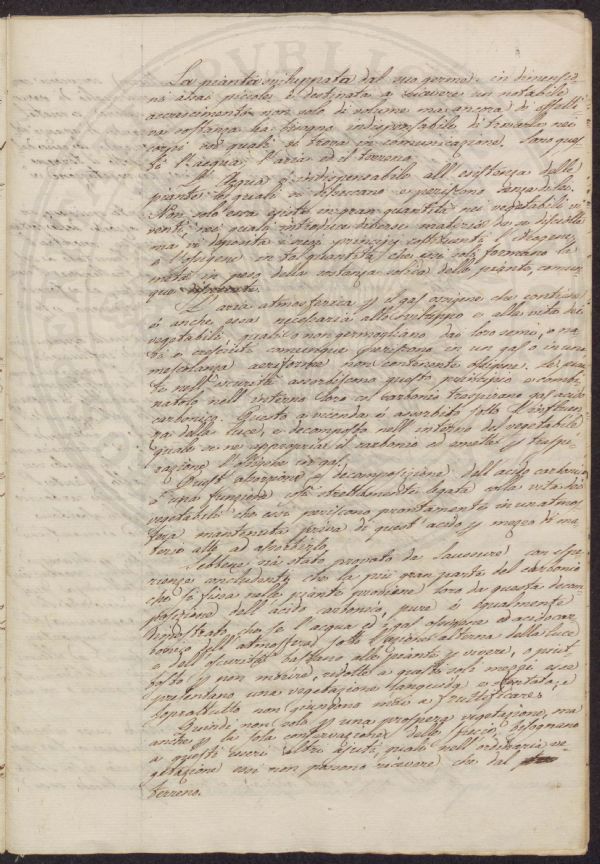 La pianta sviluppata dal suo germe in dimensio
ni assai piccole è destinata a ricevere un notabile
accrescimento non solo di volume ma ancora di
sostanza ha bisogno indispensabile di trovarlo nei
corpi coi quali si trova in comunicazione. Sono que
sti l'acqua, l'aria ed il terreno.
L'Acqua è indispensabile all'esistenza delle
piante le quali si disseccano e periscono senza di lei.
Non solo essa esiste in gran quantità nei vegetabili vi
venti, nei quali introduce diverse materie da se disciolte
ma vi deposita i suoi principj costituenti l'idrogeno
e l'ossigeno in tal quantità, che essi soli formano la
metà in peso della sostanza solida delle piante, comun
que
L'aria atmosferica p il gas ossigene che contiene
è anche essa necessaria allo sviluppo e alla vita dei
vegetabili, quali o non germogliano dai loro semi, o na
ti e cresciuti comunque periscono in un gas o in una
mescolanza aeriforme non contenente ossigene. Le pian
te nell'oscurità assorbiscono questo principio e combi
natolo nell'interno loro col carbonio traspirano gas acido
carbonico. Questo a vicenda è assorbito sotto l'influen
za della luce, e decomposto nell'interno del vegetabile
quale se ne appropria il carbonio ed emette p traspi
razione l'ossigene in gas.
Quest'assorzione e decomposizione dell'acido carbonico
è una funzione così strettamente legata colla vita dei
vegetabili che essi periscono prontamente in un'atmos
fera mantenuta priva di quest'acido p mezzo di ma
terie atte ad assorbirlo.
Sebbene sia stato provato da Saussure con espe
rienze concludenti che la più gran parte del carbonio
che si fissa nelle piante proviene loro da questa decom
posizione dell'acido carbonico, pure è egualmente
dimostrato che se l'acqua e i gas ossigene ed acido car
bonico dell'atmosfera sotto l'azione alterna della luce
e dell'oscurità bastano alle piante p vivere, o piut
tosto p non morire, ridotte a questi soli mezzi esse
presentano una vegetazione languida e stentata, e
soprattutto non giungono mai a fruttificare.
Quindi non solo p una prospera vegetazione, ma
anche p la sola conservazione delle specie, bisognano
a questi esseri altri ajuti, quali nell'ordinaria ve
getazione essi non possono ricevere che dal
terreno.